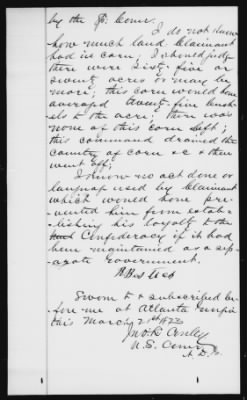 by the Sp. Comr.
I do not know
how much land Claimant
had in corn; I should judge
there were sixty five or
seventy acres or may be
more; this corn would have
averaged twenty-five bush-
els to the acre; there was
none of this corn left;
this command drained the
country of corn &c & then
went off;
I know no act done or
language used by Claimant
which would have pre-
vented him from estab-
lishing his loyalty to the
Confederacy if it had
been maintained as a sep-
arate government.
Sworn to & subscribed be-
fore me at Atlanta Georgia
this March 21st 1872
U.S. Comr